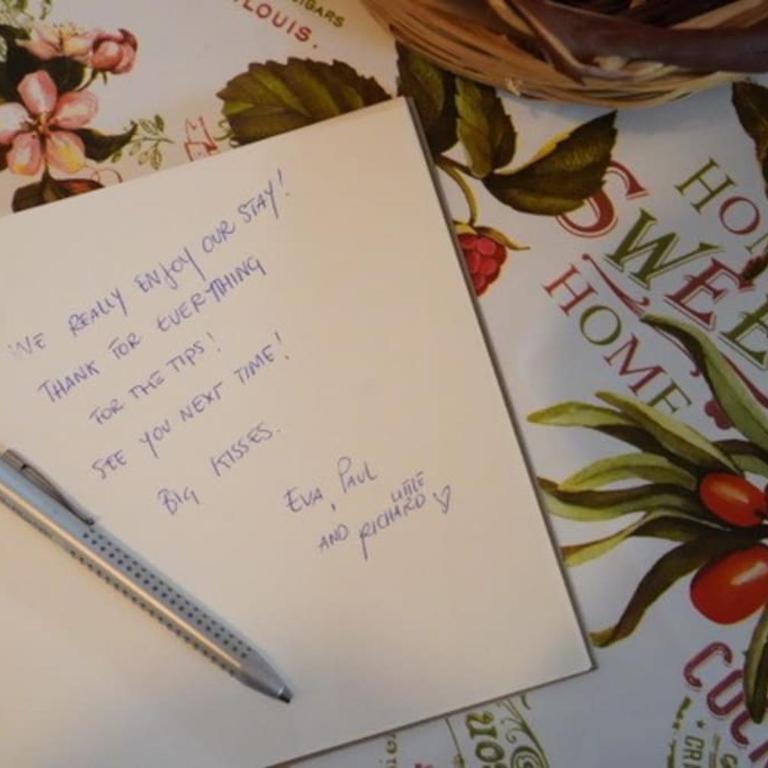 CIGARS
LOUIS.
WE REALLY ENJOY OUR STAY!
THANK FOR EVERYTHING
FOR THE TIPS!
SEE YOU NEXT TIME!
BIG KISSES.
EVA, PAUL
AND LITTLE RICHARD ♡
HOM
SWEE
HOME
COU